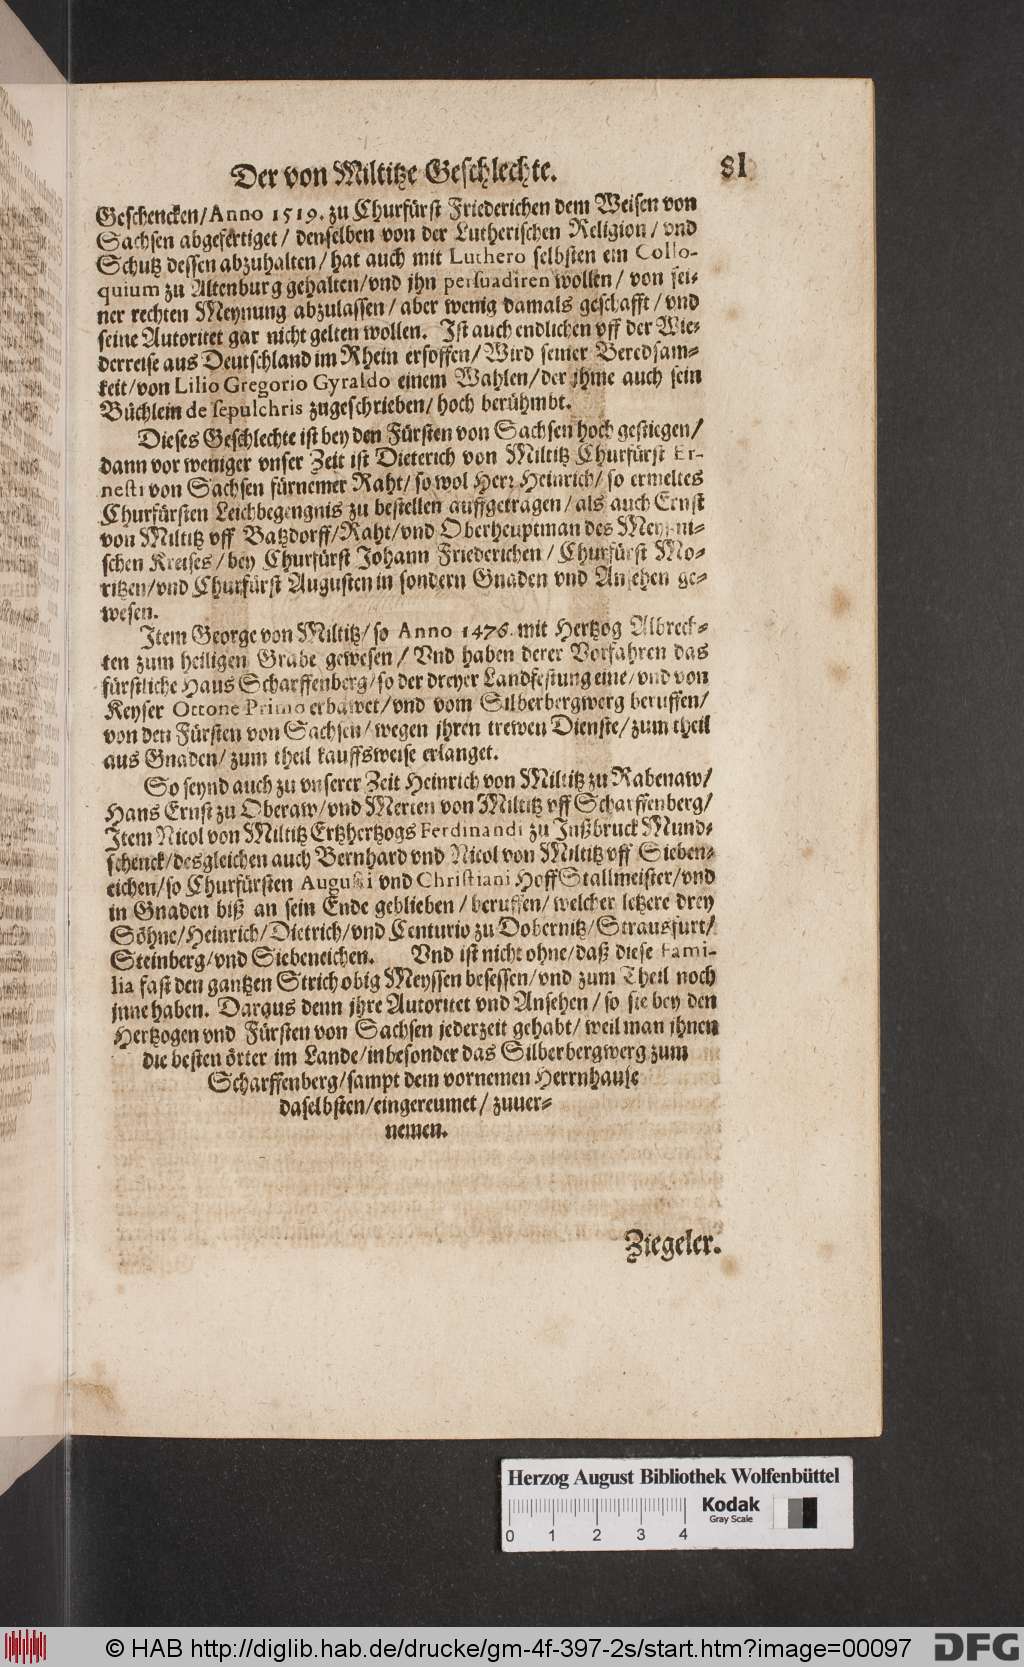 Der von Miltitze Geschlechte. 81
Geschencken/ Anno 1519. zu Churfürst Friederichen dem Weisen von
Sachsen abgefertiget/ denselben von der Lutherischen Religion/ vnd
Schutz dessen abzuhalten/ hat auch mit Luthero selbsten ein Collo-
quium zu Altenburg gehalten/ vnd jhn persuadiren wollen/ von sei-
ner rechten Meynung abzulassen/ aber wenig damals geschafft/ vnd
seine Autoritet gar nicht gelten wollen. Ist auch endlichen vff der Wie-
derreise aus Deutschland im Rhein ersoffen/ Wird seiner Beredsam-
keit/ von Lilio Gregorio Gyraldo einem Wahlen/ der jhme auch sein
Büchlein de sepulchris zugeschrieben/ hoch berühmbt.
Dieses Geschlechte ist bey den Fürsten von Sachsen hoch gestiegen/
dann vor weniger vnser Zeit ist Dieterich von Miltitz Churfürst Er-
nesti von Sachsen fürnemer Raht/ so wol Herr Heinrich/ so ermeltes
Churfürsten Leichbegengnis zu bestellen auffgetragen/ als auch Ernst
von Miltitz vff Batzdorff/ Raht/ vnd Oberheuptman des Meyßni-
schen Kreises/ bey Churfürst Johann Friederichen/ Churfürst Mo-
ritzen/ vnd Churfürst Augusten in sondern Gnaden vnd Ansehen ge-
wesen.
Item George von Miltitz/ so Anno 1476. mit Hertzog Albrech-
ten zum heiligen Grabe gewesen/ Vnd haben derer Vorfahren das
fürstliche Haus Scharffenberg/ so der dreyer Landfestung eine/ vnd von
Keyser Ottone Primo erbawet/ vnd vom Silberbergwerg beruffen/
von den Fürsten von Sachsen/ wegen jhren trewen Dienste/ zum theil
aus Gnaden/ zum theil kauffsweise erlanget.
So seynd auch zu vnserer Zeit Heinrich von Miltitz zu Rabenaw/
Hans Ernst zu Oberaw/ vnd Merten von Miltitz vff Scharffenberg/
Item Nicol von Miltitz Ertzhertzogs Ferdinandi zu Inßbruck Mund-
schenck/ desgleichen auch Bernhard vnd Nicol von Miltitz vff Sieben-
eichen/ so Churfürsten Augusti vnd Christiani Hoff Stallmeister/ vnd
in Gnaden biß an sein Ende geblieben/ beruffen/ welcher letzere drey
Söhne/ Heinrich/ Dietrich/ vnd Centurio zu Dobernitz/ Strausfurt/
Steinberg/ vnd Siebeneichen. Vnd ist nicht ohne/ daß diese Fami-
lia fast den gantzen Strich obig Meyssen besessen/ vnd zum Theil noch
jnne haben. Daraus denn jhre Autoritet vnd Ansehen/ so sie bey den
Hertzogen vnd Fürsten von Sachsen jederzeit gehabt/ weil man jhnen
die besten örter im Lande/ inbesonder das Silberbergwerg zum
Scharffenberg/ sampt dem vornemen Herrnhause
daselbsten/ eingereumet/ zuuer-
nemen.
Ziegeler.
Herzog August Bibliothek Wolfenbüttel
Kodak
Gray Scale
0 1 2 3 4
© HAB http://diglib.hab.de/drucke/gm-4f-397-2s/start.htm?image=00097
DFG